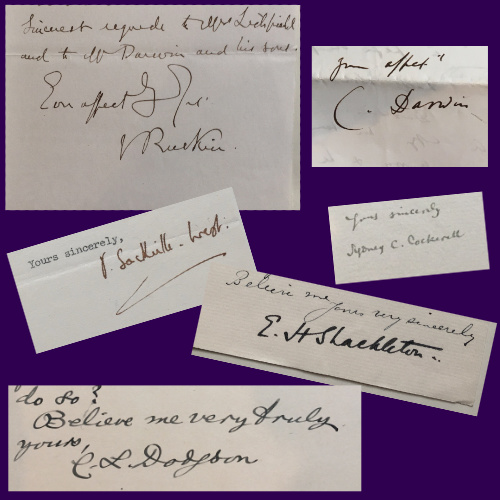 Sincerest regards to Mrs Litchfield
and to Mr Darwin and his sons.
Ever affect
J Ruskin.
your affect
C. Darwin
Yours sincerely,
V. Sackville-West.
Yours sincerely
Sydney C. Cockerell
Believe me
yours very sincerely
E. H Shackleton..
do so?
Believe me very truly
yours,
C. L. Dodgson